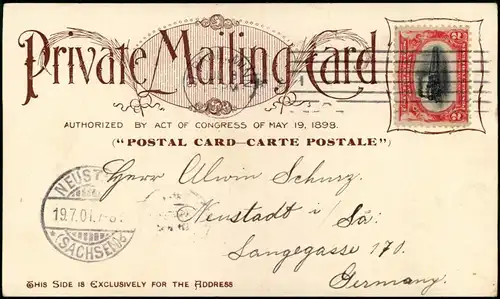 Private Mailing Card
AUTHORIZED BY ACT OF CONGRESS OF MAY 19, 1898.
("POSTAL CARD–CARTE POSTALE")
Herr Alwin Schurz.
NEUST
19.7.01.
*(SACHSEN)*
Neustadt i/Sa:
Langegasse 170.
Germany.
THIS SIDE IS EXCLUSIVELY FOR THE ADDRESS